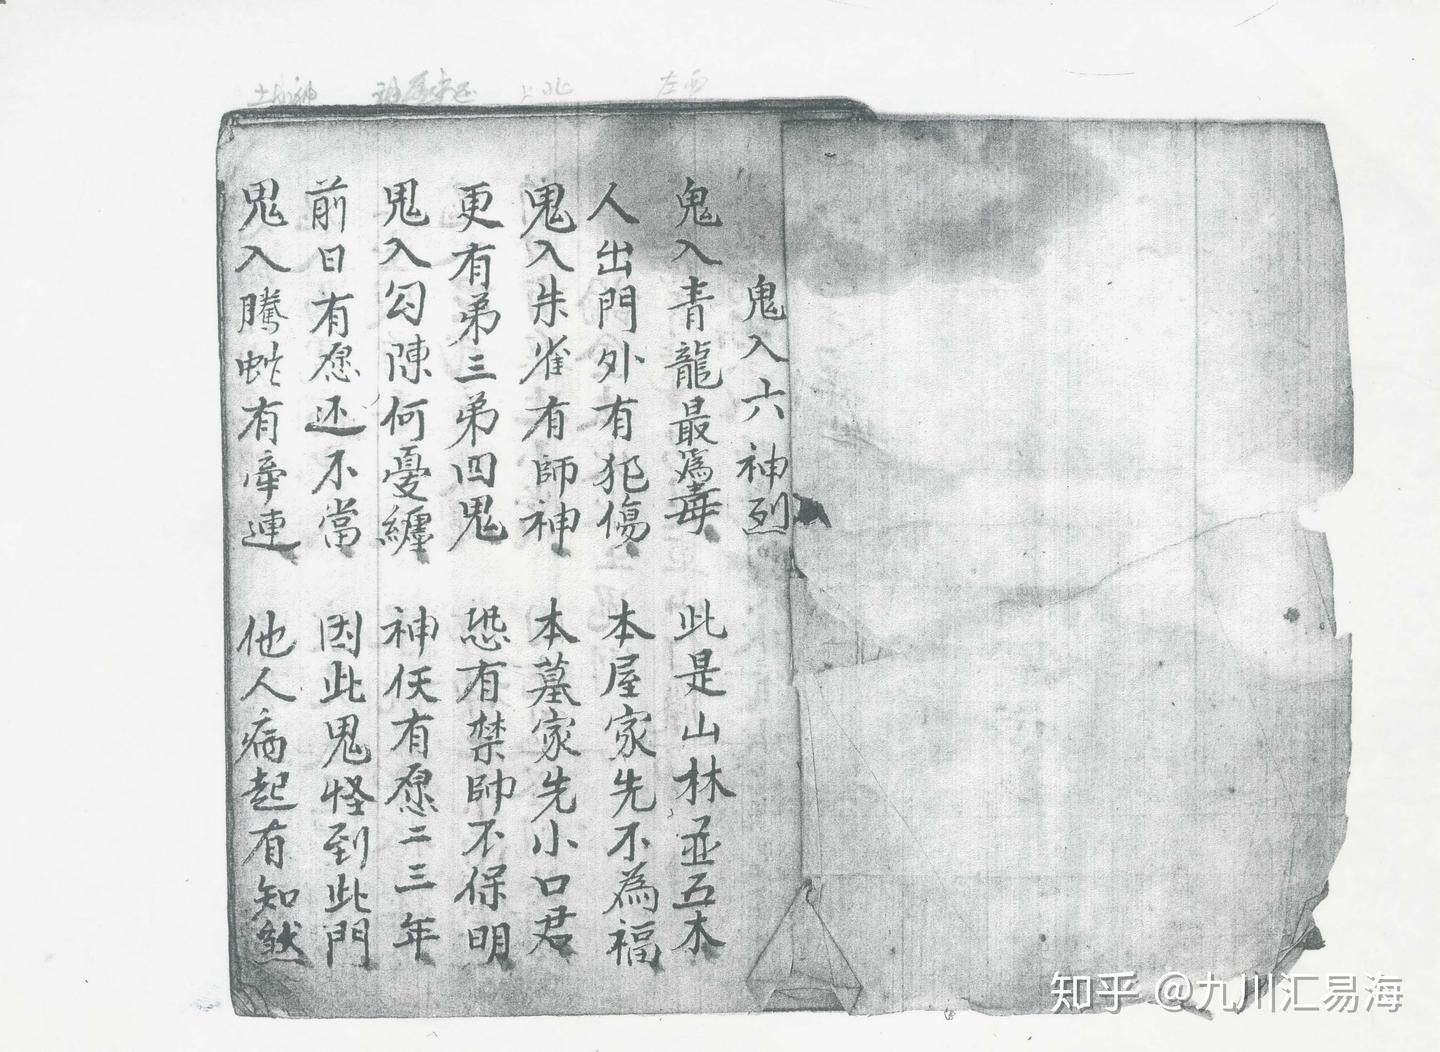 鬼入六神列
鬼入青龍最為毒 此是山林並五木
人出門外有犯傷 本屋家先不為福
鬼入朱雀有師神 本墓家先小口君
更有弟三弟四鬼 恐有禁師不保明
鬼入勾陳何憂纏 神伏有愿二三年
前日有愿还不當 因此鬼怪到此門
鬼入騰蛇有牽連 他人病起有知然
知乎 @九川汇易海